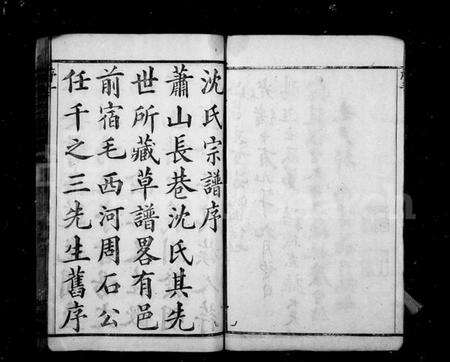 沈氏宗譜序
蕭山長巷沈氏其先
世所藏草譜畧有邑
前宿毛西河周石公
任千之三先生舊序